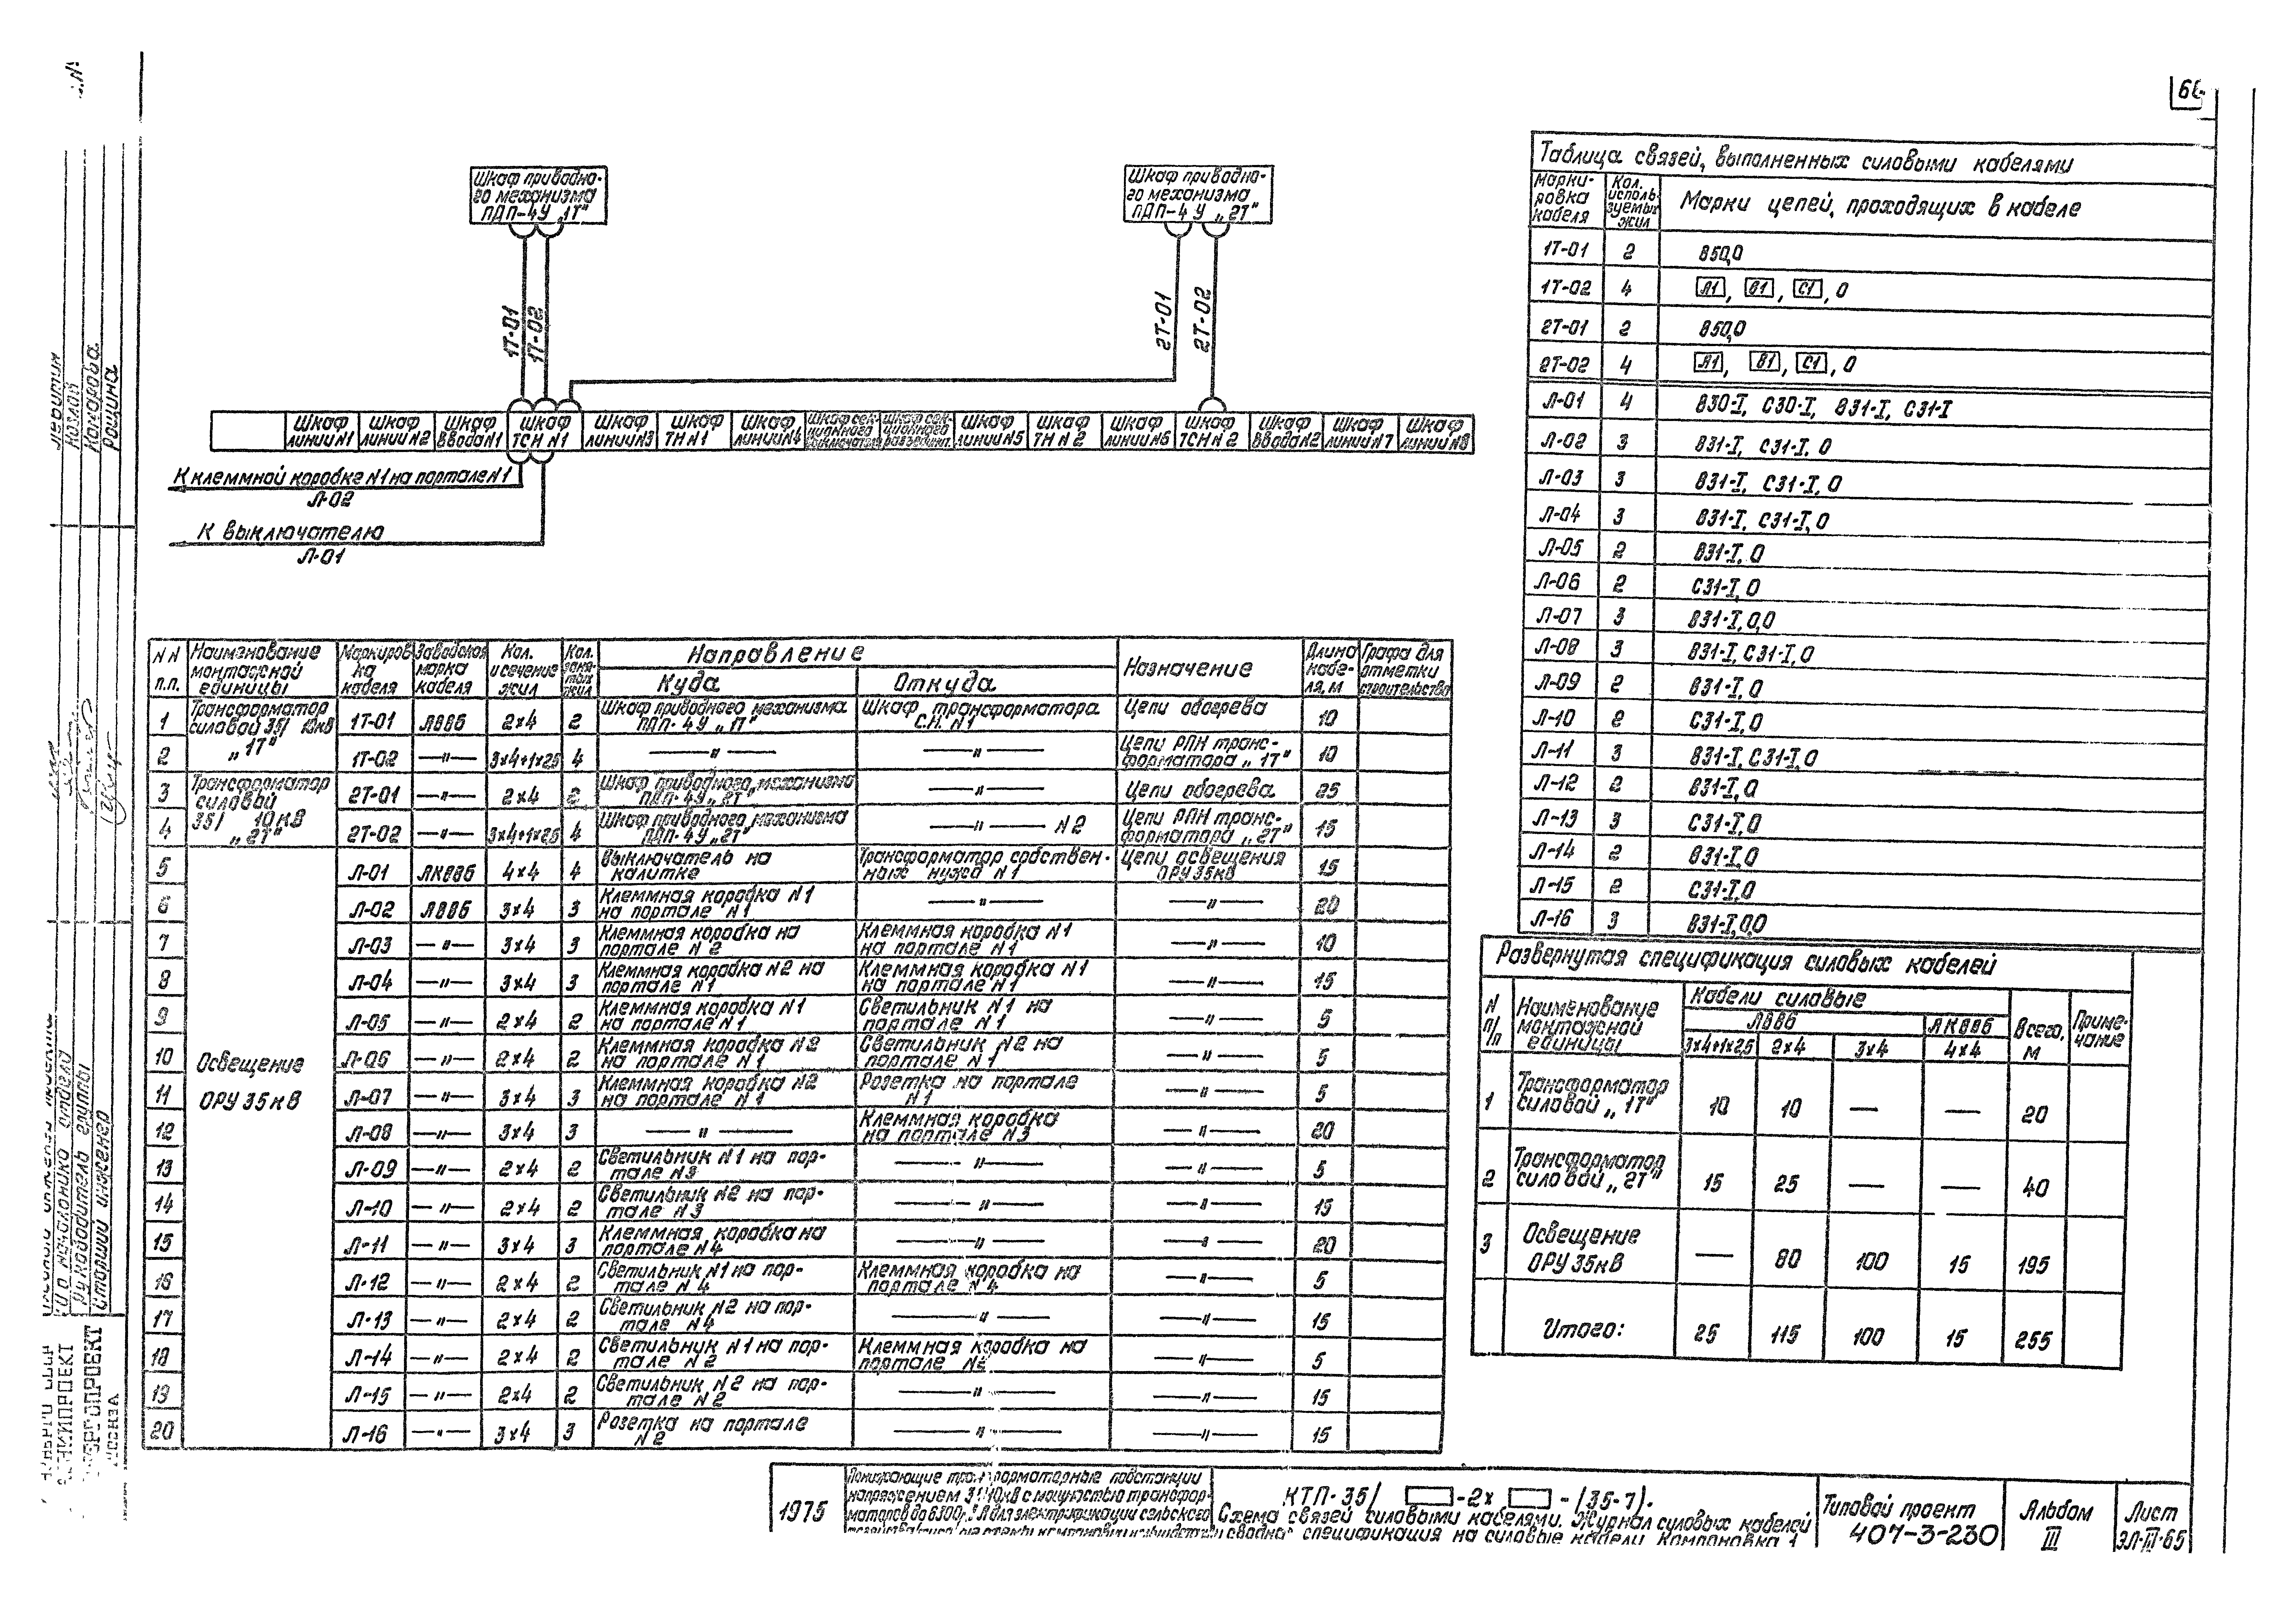 66
Шкаф приводно-
го механизма
ПДП-4У „1Т"
Шкаф приводно-
го механизма
ПДП-4У „2Т"
1Т-01
1Т-02
2Т-01
2Т-02
Шкаф линии N1
Шкаф линии N2
Шкаф ввода N1
Шкаф ТСН N1
Шкаф линии N3
Шкаф ТН N1
Шкаф линии N4
Шкаф секционного выключателя
Шкаф секционного разъедин.
Шкаф линии N5
Шкаф ТН N2
Шкаф линии N6
Шкаф ТСН N2
Шкаф ввода N2
Шкаф линии N7
Шкаф линии N8
К клеммной коробке N1 на портале N1
Л-02
К выключателю
Л-01
Таблица связей, выполненных силовыми кабелями
Марки-ровка кабеля | Кол. исполь-зуемых жил | Марки цепей, проходящих в кабеле
1Т-01 2 850,0
1Т-02 4 Л1, В1, С1, 0
2Т-01 2 850,0
2Т-02 4 Л1, В1, С1, 0
Л-01 4 В30-I, С30-I, В31-I, С31-I
Л-02 3 В31-I, С31-I, 0
Л-03 3 В31-I, С31-I, 0
Л-04 3 В31-I, С31-I, 0
Л-05 2 В31-I, 0
Л-06 2 С31-I, 0
Л-07 3 В31-I, 0,0
Л-08 3 В31-I, С31-I, 0
Л-09 2 В31-I, 0
Л-10 2 С31-I, 0
Л-11 3 В31-I, С31-I, 0
Л-12 2 В31-I, 0
Л-13 3 С31-I, 0
Л-14 2 В31-I, 0
Л-15 2 С31-I, 0
Л-16 3 В31-I, 0,0
NN п.п. | Наименование монтажной единицы | Маркиров ка кабеля | Заводская марка кабеля | Кол. и сечение жил | Кол. заня-тых жил | Направление | Куда | Откуда | Назначение | Длина кабе-ля, м | Графа для отметки строительства
1 Трансформатор силовой 35/ 10кВ „1Т" 1Т-01 АВВБ 2×4 2 Шкаф приводного механизма ПДП-4У „1Т" Шкаф трансформатора С.Н. N1 Цепи обогрева 10
2 1Т-02 —"— 3×4+1×2,5 4 —"— —"— Цепи РПН транс-форматора „1Т" 10
3 Трансформатор силовой 35/ 10кВ „2Т" 2Т-01 —"— 2×4 2 Шкаф приводного механизма ПДП-4У „2Т" —"— Цепи обогрева 25
4 2Т-02 —"— 3×4+1×2,5 4 Шкаф приводного механизма ПДП-4У „2Т" —"— N2 Цепи РПН транс-форматора „2Т" 15
5 Освещение ОРУ 35кВ Л-01 АКВВБ 4×4 4 Выключатель на калитке Трансформатор собствен-ных нужд N1 Цепи освещения ОРУ 35кВ 15
6 Л-02 АВВБ 3×4 3 Клеммная коробка N1 на портале N1 —"— —"— 20
7 Л-03 —"— 3×4 3 Клеммная коробка на портале N2 Клеммная коробка N1 на портале N1 —"— 10
8 Л-04 —"— 3×4 3 Клеммная коробка N2 на портале N1 Клеммная коробка N1 на портале N1 —"— 15
9 Л-05 —"— 2×4 2 Клеммная коробка N1 на портале N1 Светильник N1 на портале N1 —"— 5
10 Л-06 —"— 2×4 2 Клеммная коробка N2 на портале N1 Светильник N2 на портале N1 —"— 5
11 Л-07 —"— 3×4 3 Клеммная коробка N2 на портале N1 Розетка на портале N1 —"— 5
12 Л-08 —"— 3×4 3 —"— Клеммная коробка на портале N3 —"— 20
13 Л-09 —"— 2×4 2 Светильник N1 на пор-тале N3 —"— —"— 5
14 Л-10 —"— 2×4 2 Светильник N2 на пор-тале N3 —"— —"— 15
15 Л-11 —"— 3×4 3 Клеммная коробка на портале N4 —"— —"— 20
16 Л-12 —"— 2×4 2 Светильник N1 на пор-тале N4 Клеммная коробка на портале N4 —"— 5
17 Л-13 —"— 2×4 2 Светильник N2 на пор-тале N4 —"— —"— 15
18 Л-14 —"— 2×4 2 Светильник N1 на пор-тале N2 Клеммная коробка на портале N2 —"— 5
19 Л-15 —"— 2×4 2 Светильник N2 на пор-тале N2 —"— —"— 15
20 Л-16 —"— 3×4 3 Розетка на портале N2 —"— —"— 15
Развернутая спецификация силовых кабелей
N п/п | Наименование монтажной единицы | Кабели силовые | АВВБ | АКВВБ | Всего, м | Приме-чание
3×4+1×2,5 2×4 3×4 4×4
1 Трансформатор силовой „1Т" 10 10 — — 20
2 Трансформатор силовой „2Т" 15 25 — — 40
3 Освещение ОРУ 35кВ — 80 100 15 195
Итого: 25 115 100 15 255
1975
Понижающие трансформаторные подстанции
напряжением 35/10кВ с мощностью трансфор-
маторов до 6300 для электрификации сельского
КТП-35/ -2× -(35-7).
Схема связей силовыми кабелями. Журнал силовых кабелей
сводная спецификация на силовые кабели. Компоновка 1
Типовой проект
407-3-230
Альбом
III
Лист
ЭЛ-III-65
Козлов
Комарова
Рощина
руководитель группы
старший инженер